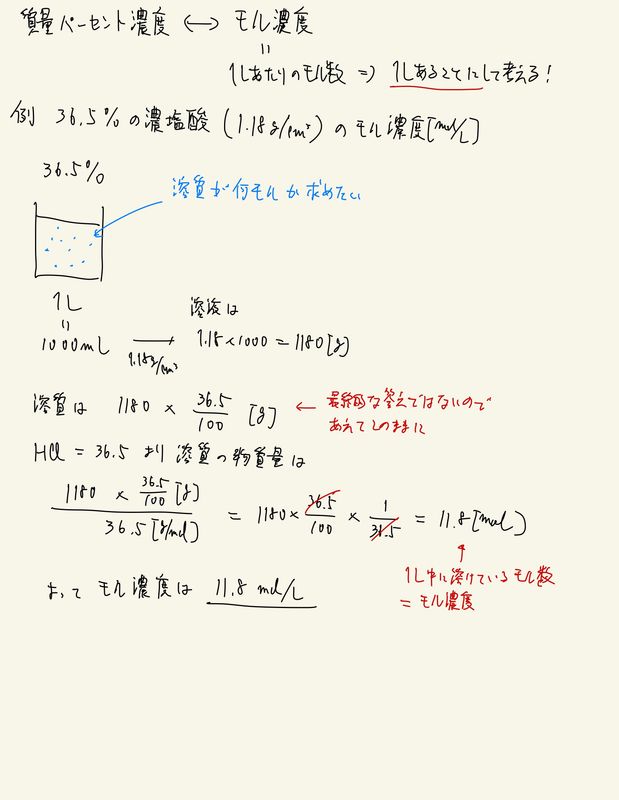 質量パーセント濃度 ⟷ モル濃度
=
1Lあたりのモル数 ⇒ 1Lあることにして考える!
例 36.5%の濃塩酸 (1.18g/cm³) のモル濃度[mol/L]
36.5%
溶質が何モルか求めたい
1L
=
1000mL → 1.18g/cm³
溶液は
1.18×1000=1180[g]
溶質は 1180 × 36.5/100 [g] ← 最終的な答えではないので
あえてこのままに
HCl = 36.5 より 溶質の物質量は
1180 × 36.5/100 [g] / 36.5[g/mol] = 1180 × 36.5/100 × 1/36.5 = 11.8[mol]
↑
1L中に溶けているモル数
= モル濃度
よって モル濃度は 11.8 mol/L